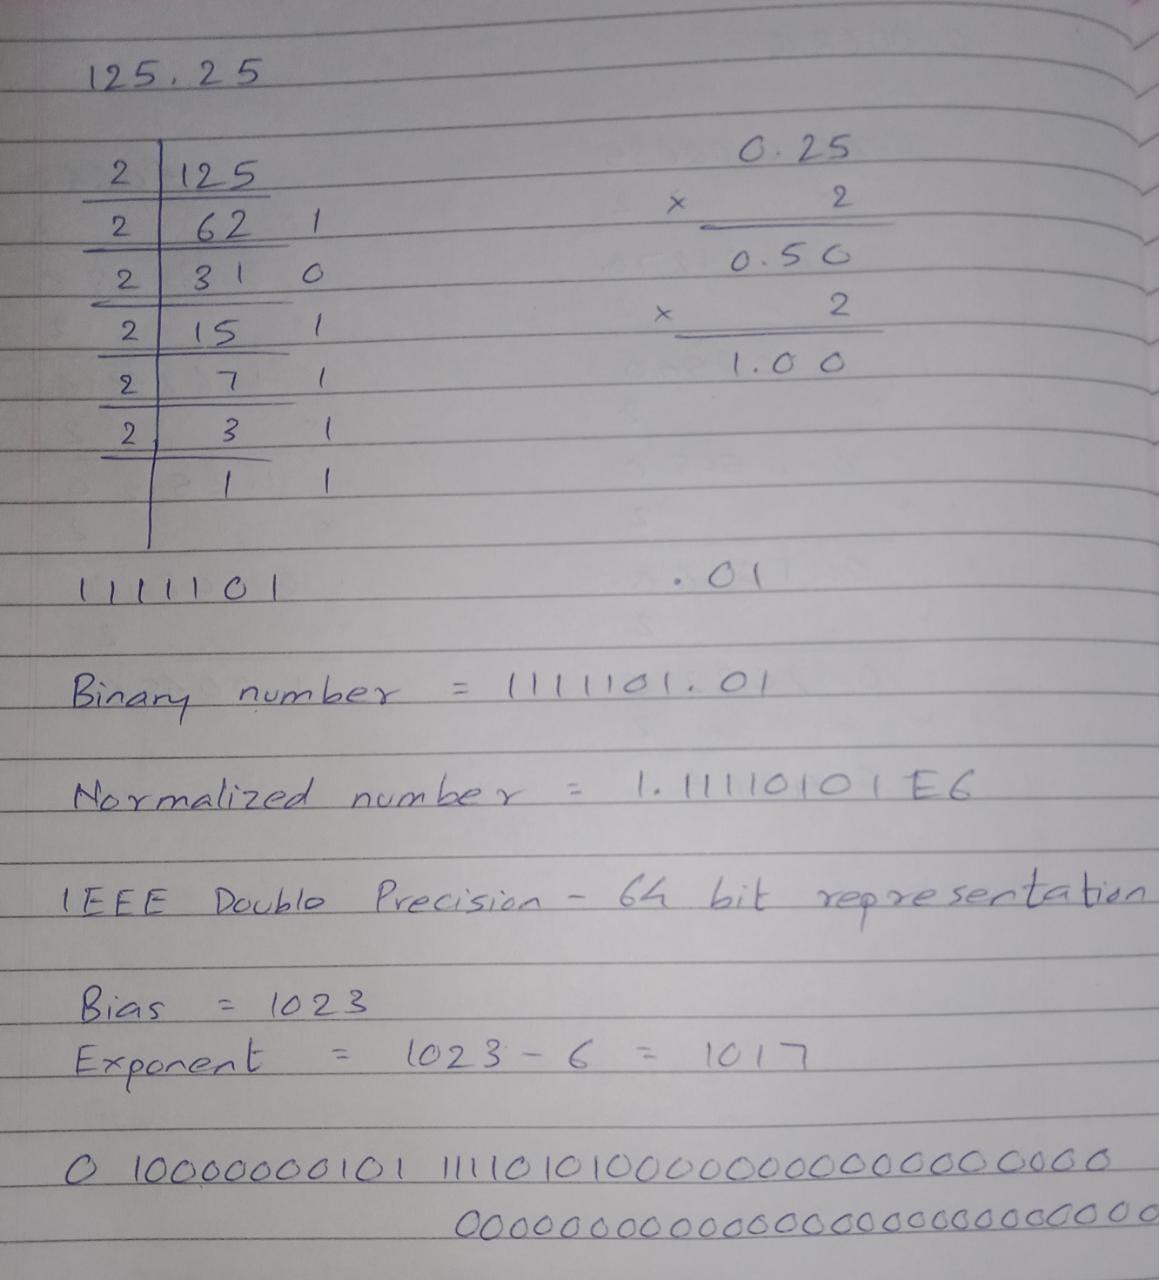 125.25
2 125
0.25
2 62 1
x 2
2 31 0
0.50
2 15 1
x 2
2 7 1
1.00
2 3 1
1 1
1111101 .01
Binary number = 1111101.01
Normalized number = 1.11110101 E6
IEEE Double Precision - 64 bit representation
Bias = 1023
Exponent = 1023 - 6 = 1017
0 10000000101 11110101000000000000000000
00000000000000000000000000